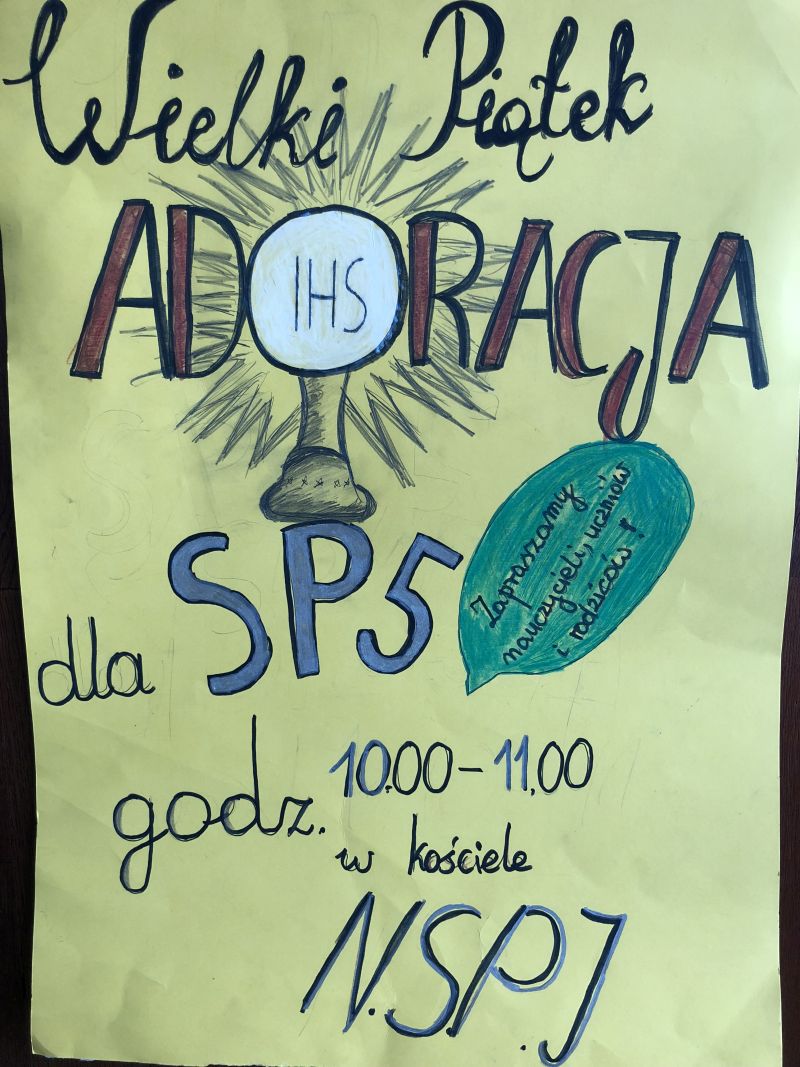 Wielki Piątek
ADORACJA
IHS
dla SP5
Zapraszamy
nauczycieli, uczniów
i rodziców!
godz. 10.00-11.00
w kościele
N.S.P.J